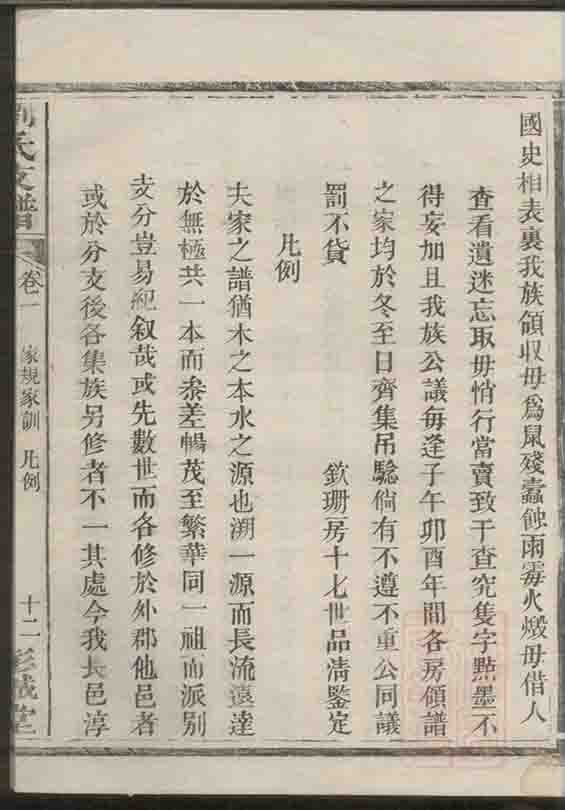 國史相表裏我族領収毋爲鼠殘蠧蝕雨霉火燬毋借人
查看遺迷忘取毋悄行當賣致干查究隻字㸃墨不
得妄加且我族公議每逢子午卯酉年間各房領譜
之家均於冬至日齊集吊驗倘有不遵不重公同議
罰不貸 欽珊房十七世品清鑒定
凡例
夫家之譜猶木之本水之源也溯一源而長流遠達
於無極共一本而叅差暢茂至繁華同一祖而派别
支分豈易紀叙哉或先數世而各修於外郡他邑者
或於分支後各集族另修者不一其處今我長邑淳
氏支譜 卷一 家規家訓 凡例 十二 彭城堂